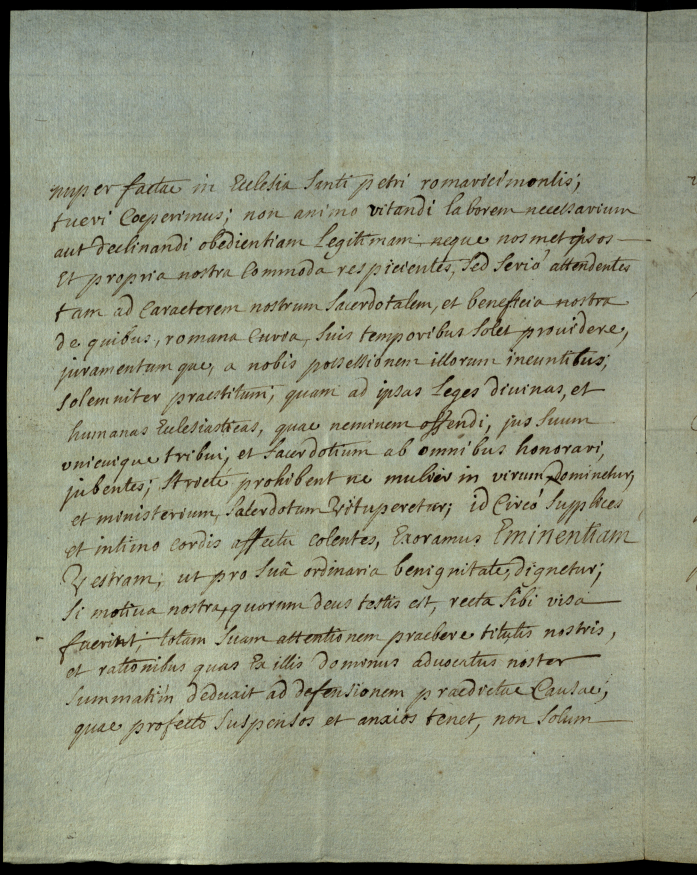 nuper factae in Ecclesia Santi petri romaricimontis;
tueri Coeperimus; non animo vitandi laborem necessarium
aut declinandi obedientiam Legitimam neque nosmet ipsos
Et propria nostra Commoda respicientes, Sed Serio attendentes
tam ad Caracterem nostrum Sacerdotalem, et beneficia nostra
de quibus, romana Curia, Suis temporibus Solet providere,
juramentumque, a nobis possessionem illorum ineuntibus,
Solemniter praestitum; quam ad ipsas Leges divinas, et
humanas Eclesiasticas, quae neminem offendi, jus Suum
unicuique tribui, et Sacerdotium ab omnibus honorari,
jubentes; Stricté prohibent ne mulier in virum Dominetur,
et ministerium, Sacerdotum Vituperetur; id Circó Supplices
et intimo cordis affectu colentes, Exoramus Eminentiam
Vestram, ut pro Suâ ordinaria benignitate, dignetur,
Si motiva nostra, quorum deus testis est, recta Sibi visa
fuerint, totam Suam attentionem praebere titulis nostris,
et rationibus quas Ex illis dominus advocatus noster
Summatim deduxit ad defensionem praedictae Causae,
quae profecto Suspensos et anxios tenet, non Solum